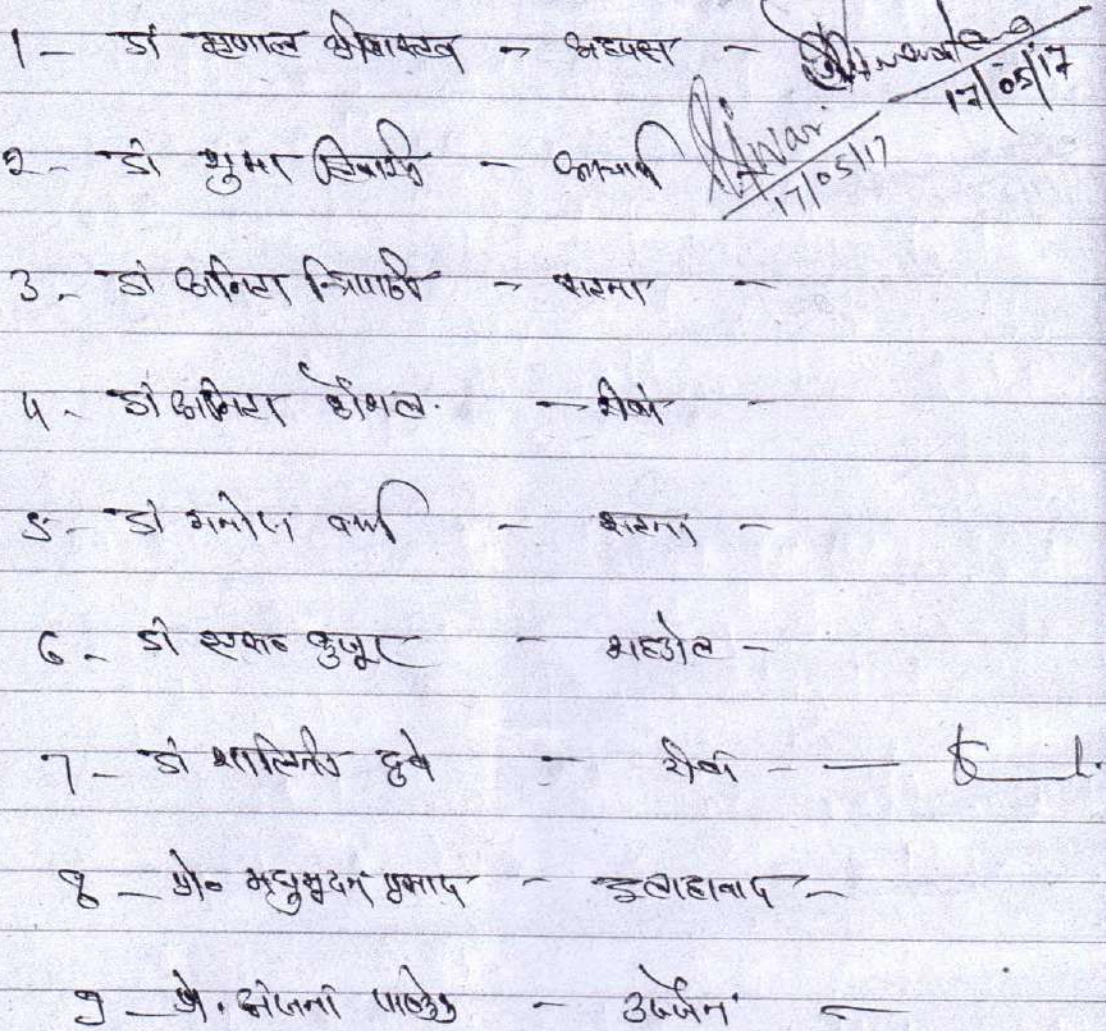 1 - डॉ मृणाल श्रीवास्तव - अध्यक्ष - 17/05/17
2 - डॉ शुभा तिवारी - आचार्य 17/05/17
3 - डॉ अनिता त्रिपाठी - सतना -
4 - डॉ अनिता कौशल - रीवा -
5 - डॉ मनोज वर्मा - सतना -
6 - डॉ कुजूर - शहडोल -
7 - डॉ शालिनी दुबे - रीवा -
8 - प्रो० मधुसूदन प्रसाद - इलाहाबाद -
9 - प्रो. अंजना पाण्डेय - उज्जैन -